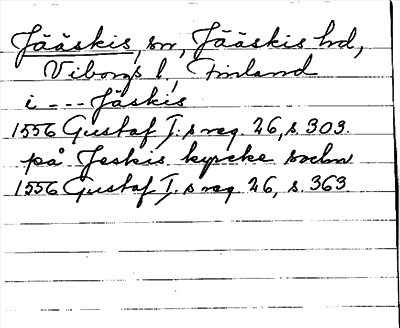 Jääskis, sn, Jääskis hd,
Viborgs l., Finland
i --- Jäskis
1556 Gustaf I:s reg. 26, s. 303.
på Jeskis kyrcke sochn
1556 Gustaf I:s reg. 26, s. 363.